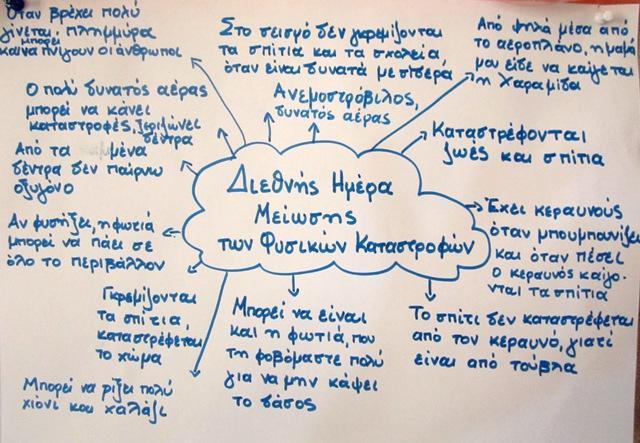 Όταν βρέχει πολύ
γίνεται πλημμύρα
μπορεί
και να πνίγουν οι άνθρωποι
Στο σεισμό δεν γκρεμίζονται
τα σπίτια και τα σχολεία,
όταν είναι δυνατά με σίδερα
Από ψηλά μέσα από
το αεροπλάνο, η μαμά
μου είδε να καίγεται
η Χαραμίδα
Ο πολύ δυνατός αέρας
μπορεί να κάνει
καταστροφές, ξεριζώνει
δέντρα
Ανεμοστρόβιλος,
δυνατός αέρας
Καταστρέφονται
ζωές και σπίτια
Από τα μένα
δέντρα δεν παίρνω
οξυγόνο
Διεθνής Ημέρα
Μείωσης
των Φυσικών Καταστροφών
Αν φυσήξει, η φωτιά
μπορεί να πάει σε
όλο το περιβάλλον
Έχει κεραυνούς
όταν μπουμπουνίζει
και όταν πέσει
ο κεραυνός καίγο-
νται τα σπίτια
Γκρεμίζονται
τα σπίτια,
καταστρέφεται
το χώμα
Μπορεί να είναι
και η φωτιά, που
τη φοβόμαστε πολύ
για να μην κάψει
το δάσος
Το σπίτι δεν καταστρέφεται
από τον κεραυνό, γιατί
είναι από τούβλα
Μπορεί να ρίξει πολύ
χιόνι και χαλάζι